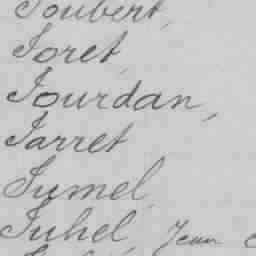 Joubert,
Joret,
Jourdan,
Jarret
Jumel,
Juhel, Jean